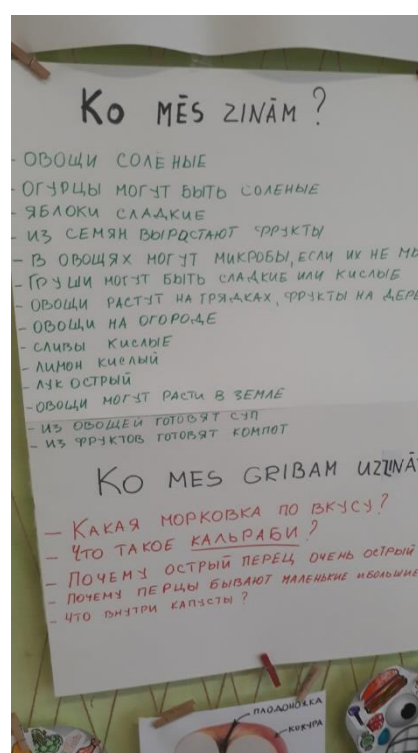 Ko MĒS ZINĀM ?
- ОВОЩИ СОЛЁНЫЕ
- ОГУРЦЫ МОГУТ БЫТЬ СОЛЕНЫЕ
- ЯБЛОКИ СЛАДКИЕ
- ИЗ СЕМЯН ВЫРАСТАЮТ ФРУКТЫ
- В ОВОЩЯХ МОГУТ МИКРОБЫ, ЕСЛИ ИХ НЕ
- ГРУШИ МОГУТ БЫТЬ СЛАДКИЕ ИЛИ КИСЛЫЕ
- ОВОЩИ РАСТУТ НА ГРЯДКАХ, ФРУКТЫ НА
- ОВОЩИ НА ОГОРОДЕ
- СЛИВЫ КИСЛЫЕ
- ЛИМОН КИСЛЫЙ
- ЛУК ОСТРЫЙ
- ОВОЩИ МОГУТ РАСТИ В ЗЕМЛЕ
- ИЗ ОВОЩЕЙ ГОТОВЯТ СУП
- ИЗ ФРУКТОВ ГОТОВЯТ КОМПОТ
KO MES GRIBAM
- КАКАЯ МОРКОВКА ПО ВКУСУ?
- ЧТО ТАКОЕ КАЛЬРАБИ?
- ПОЧЕМУ ОСТРЫЙ ПЕРЕЦ ОЧЕНЬ ОСТРЫЙ
- ПОЧЕМУ ПЕРЦЫ БЫВАЮТ МАЛЕНЬКИЕ И БОЛЬШИЕ
- ЧТО ВНУТРИ КАПУСТЫ?
ПЛОДОНОЖКА
КОЖУРА